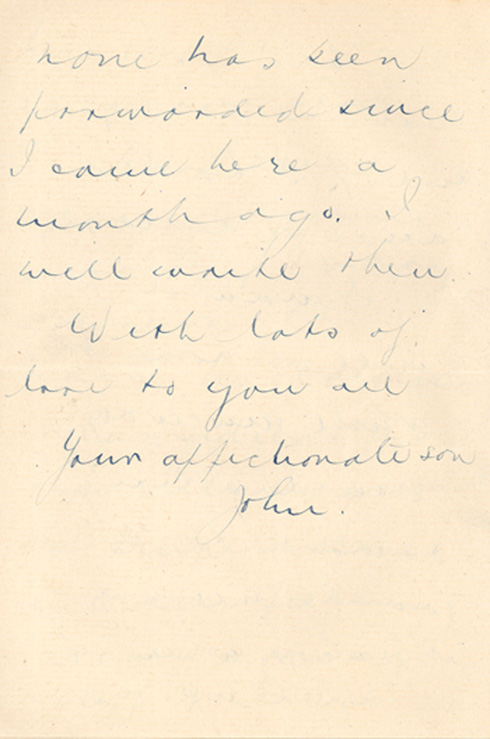 none has been
forwarded since
I came here a
month ago. I
will write then.
With lots of
love to you all
Your affectionate son
John.